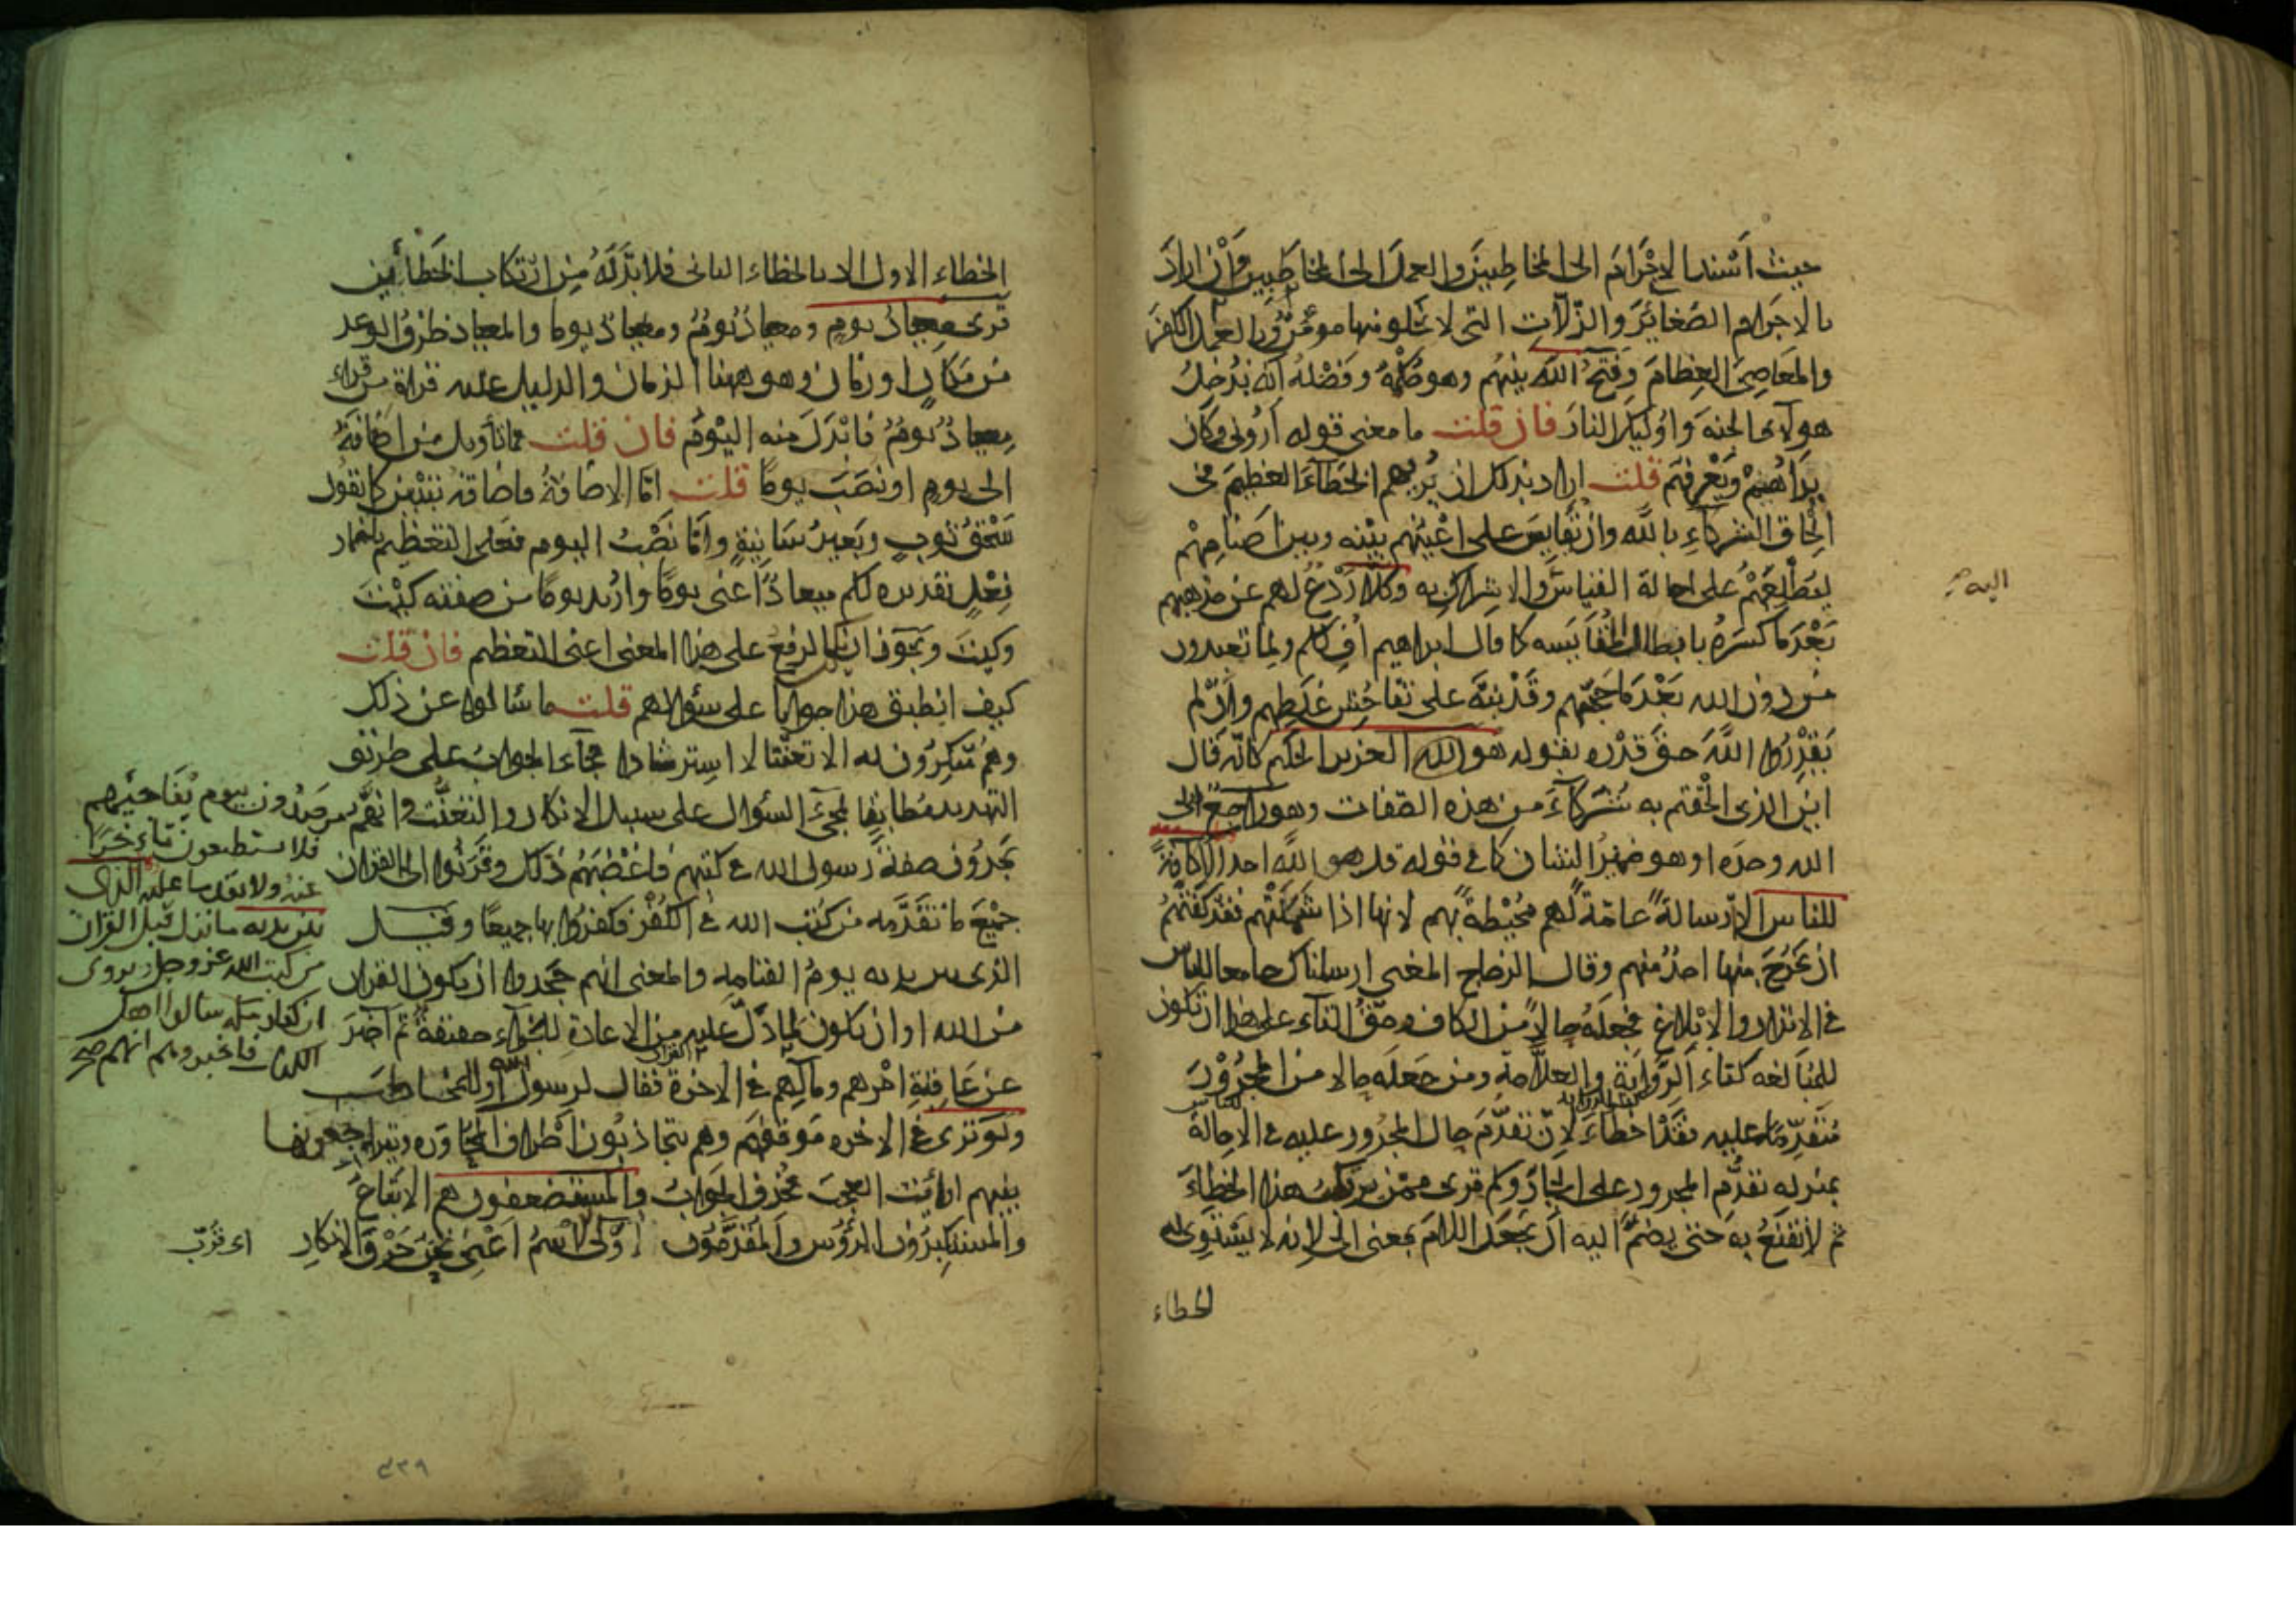 حيث اسند الاجرام الى المخاطبين والعمل الى المخاطبين وان اراد
بالاجرام الصغائر والزلات التى لا يخلو منها مومن وبالعمل الكفر
والمعاصى العظام وفتح الله بينهم وهو حكمه وفصله انه يدخل
هولاء الجنة واولئك النار فان قلت ما معنى قوله ارونى وكان
يراهم ويعرفهم قلت اراد بذلك ان يريهم الخطاء العظيم فى
الحاق الشركاء بالله وان يقايس على اعينهم بينه وبين اصنامهم
ليطلعهم على احالة القياس والاشراك به وكلا ردع لهم عن مذهبهم
بعد ما كسره بابطال المقايسه كما قال ابراهيم اف لكم ولما تعبدون
من دون الله بعد ما حجهم وقد نبه على تفاحش غلطهم وان لم
يقدروا الله حق قدره بقوله هو الله العزيز الحكيم كانه قال
اين الذى الحقتم به شركاء من هذه الصفات وهو راجع الى
الله وحده او هو ضمير الشان كما فى قوله قل هو الله احد الا كافة
للناس الا رسالة عامة لهم محيطة بهم لانها اذا شملتهم فقد كفتهم
ان يخرج منها احد منهم وقال الزجاج المعنى ارسلناك جامعا للناس
فى الانذار والابلاغ فجعله حالا من الكاف وحق التاء على هذا ان تكون
للمبالغه كتاء الرواية والعلامة ومن جعله حالا من المجرور
متقدما عليه فقد اخطاء لان تقدم حال المجرور عليه فى الاحالة
بمنزله تقدم المجرور على الجار وكم ترى ممن يرتكب هذا الخطاء
ثم لا يقنع به حتى يضم اليه ان يجعل اللام بمعنى الى لانه لا يستوى له
الخطاء
اليه
الخطاء الاول الا بالخطاء الثانى فلا بد له من ارتكاب الخطائين
قرى ميعاد يوم وميعاد يوم وميعاد يوما والميعاد ظرف الوعد
من مكان او زمان وهو ههنا الزمان والدليل عليه قراة من قراء
ميعاد يوم فابدل منه اليوم فان قلت فما تأويل من اضافه
الى يوم او نصب يوما قلت اما الاضافة فاضافة تبيين كما تقول
سحق ثوب وبعير سانية واما نصب اليوم فعلى التعظيم باضمار
فعل تقديره لكم ميعاد اعنى يوما واريد يوما من صفته كيت
وكيت ويجوز ان يكون الرفع على هذا المعنى اعنى التعظيم فان قلت
كيف انطبق هذا جوابا على سؤالهم قلت ما سالوا عن ذلك
وهم منكرون له الا تعنتا لا استرشادا فجاء الجواب على طريق
التهديد مطابقا لمجىء السؤال على سبيل الانكار والتعنت وانهم
مرصدون بيوم يفاجئهم
فلا يستطيعون تاخرا
عنه ولا تقدما عليه الذى
بين يديه ما نزل قبل القران
من كتب الله عز وجل يروى
ان كفار مكه سالوا اهل
الكتاب فاخبروهم انهم صح
يجدون صفة رسول الله فى كتبهم فاغضبهم ذلك وقرنوا الى القران
جميع ما تقدمه من كتب الله فى الكفر فكفروا بها جميعا وقيل
الذى بين يديه يوم القيامه والمعنى انهم جحدوا ان يكون القران
من الله او ان يكون لما دل عليه من الاعادة للجزاء حقيقة ثم اخبر
عن عاقبة امرهم ومآلهم فى الاخرة فقال لرسول الله او للمخاطب
ولو ترى فى الاخره موقفهم وهم يتجاذبون اطراف المحاوره ويتراجعونها
بينهم لرأيت العجب فحذف الجواب والمستضعفون هم الاتباع
والمستكبرون الرؤس والمقدمون اولى الاسم اعنى نحن حرف الانكار
اى قرب